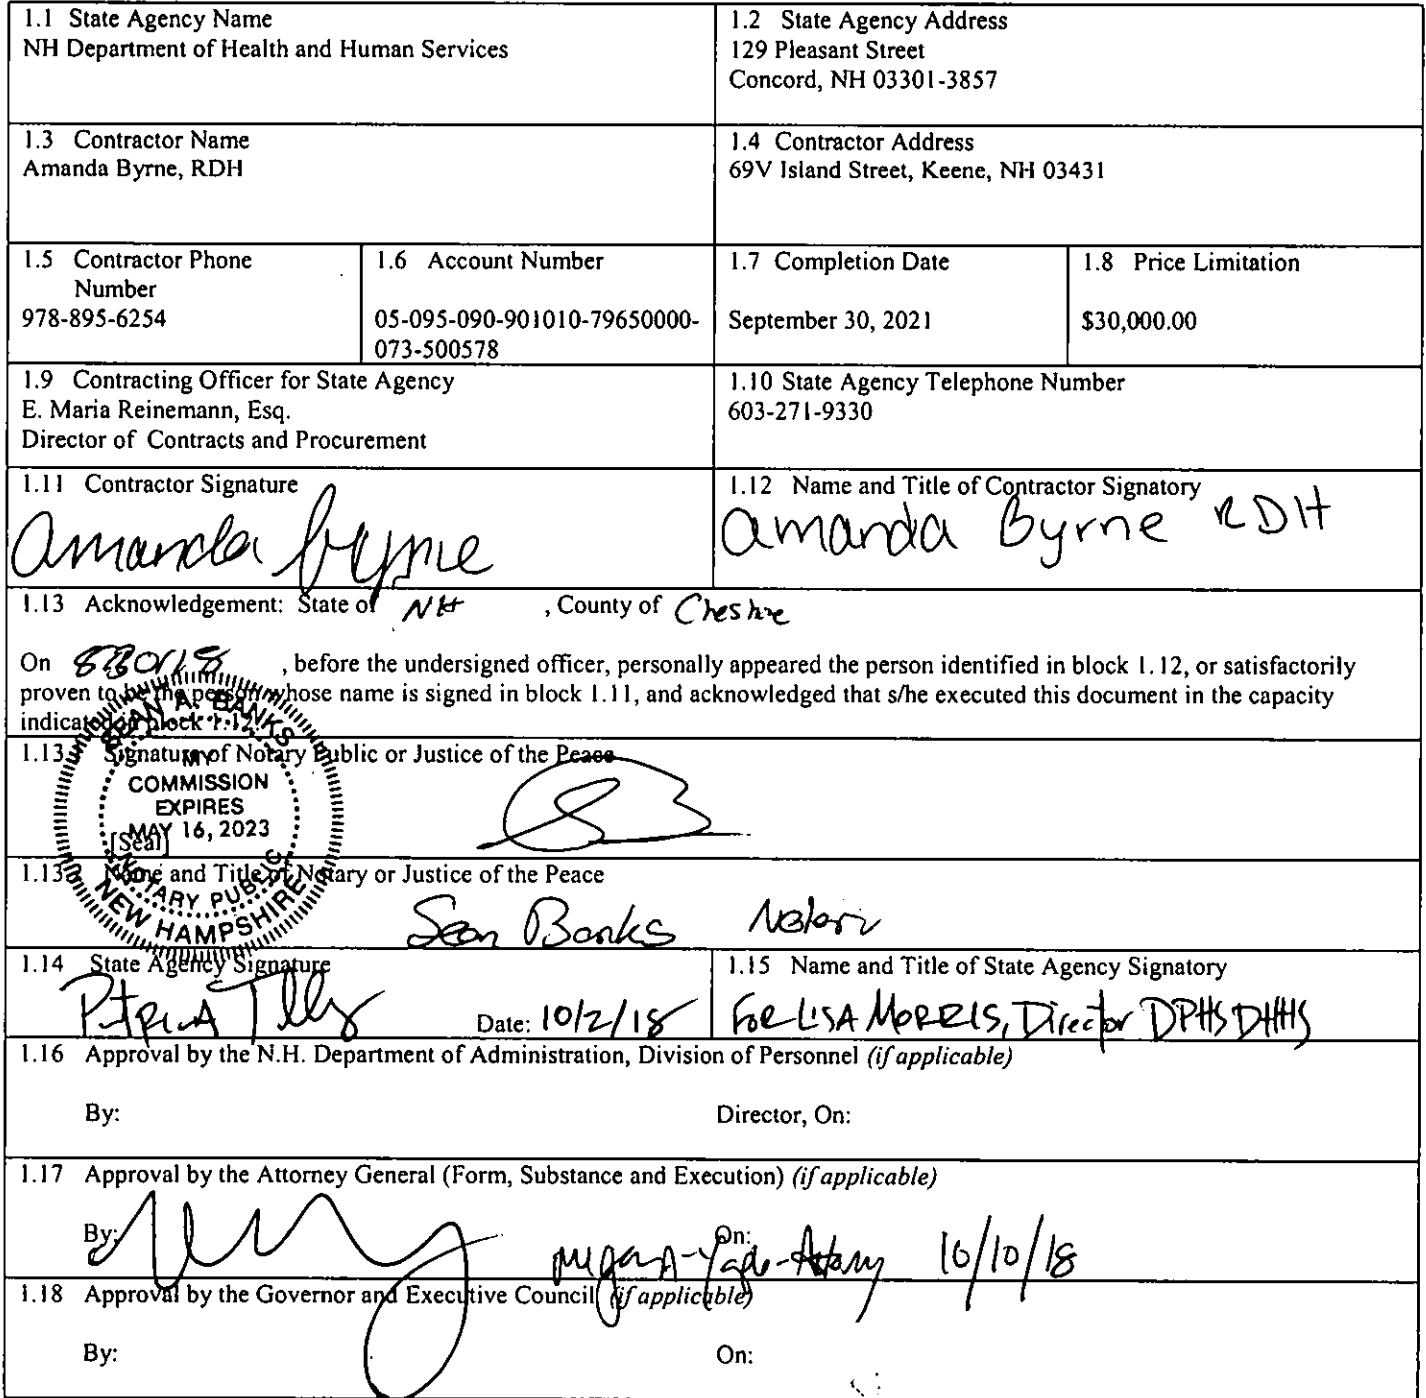 1.1 State Agency Name
NH Department of Health and Human Services
1.2 State Agency Address
129 Pleasant Street
Concord, NH 03301-3857
1.3 Contractor Name
Amanda Byrne, RDH
1.4 Contractor Address
69V Island Street, Keene, NH 03431
1.5 Contractor Phone
Number
978-895-6254
1.6 Account Number
05-095-090-901010-79650000-
073-500578
1.7 Completion Date
September 30, 2021
1.8 Price Limitation
$30,000.00
1.9 Contracting Officer for State Agency
E. Maria Reinemann, Esq.
Director of Contracts and Procurement
1.10 State Agency Telephone Number
603-271-9330
1.11 Contractor Signature
Amanda Byrne
1.12 Name and Title of Contractor Signatory
Amanda Byrne RDH
1.13 Acknowledgement: State of NH , County of Cheshire
On 8/30/18 , before the undersigned officer, personally appeared the person identified in block 1.12, or satisfactorily
proven to be the person whose name is signed in block 1.11, and acknowledged that s/he executed this document in the capacity
indicated in block 1.12.
1.13 Signature of Notary Public or Justice of the Peace
SEAN A. BANKS
MY
COMMISSION
EXPIRES
MAY 16, 2023
[Seal]
NOTARY PUBLIC
NEW HAMPSHIRE
1.13 Name and Title of Notary or Justice of the Peace
Sean Banks Notary
1.14 State Agency Signature
Date: 10/2/18
1.15 Name and Title of State Agency Signatory
For LISA MORRIS, Director DPHS DHHS
1.16 Approval by the N.H. Department of Administration, Division of Personnel (if applicable)
By: Director, On:
1.17 Approval by the Attorney General (Form, Substance and Execution) (if applicable)
By: On:
10/10/18
1.18 Approval by the Governor and Executive Council (if applicable)
By: On: